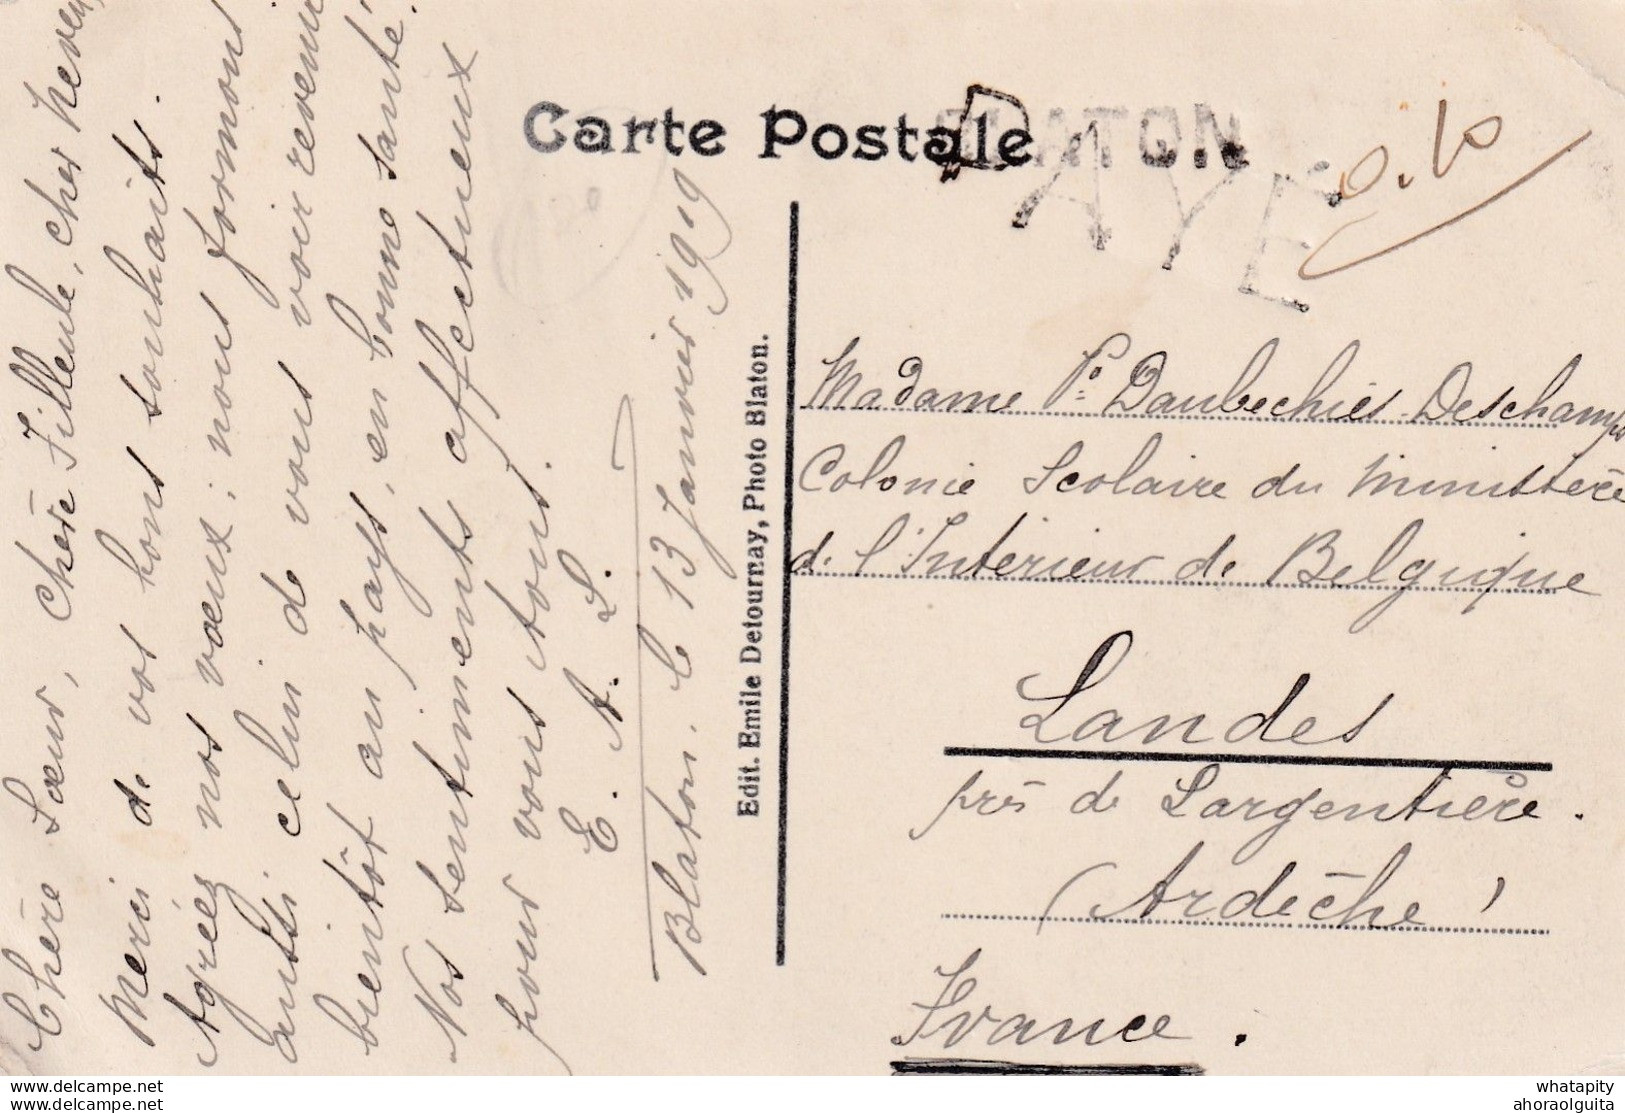 Carte Postale
BLATON
PAYE
0.10
Chère Sœur, Chère Filleule, cher neveu,
Merci de vos bons souhaits.
Agréez nos vœux ; nous formons
aussi celui de vous voir revenir
bientôt au pays, en bonne santé.
Nos sentiments affectueux
pour vous tous.
E. A. L.
Blaton. le 13 Janvier 1919
Edit. Emile Detournay, Photo Blaton.
Madame Daubechies-Deschamps
Colonie Scolaire du Ministère
de l'Intérieur de Belgique
Landes
près de Largentière.
(Ardèche)
France.
delcampe.net
delcampe.net
whatapity
ahoraolguita